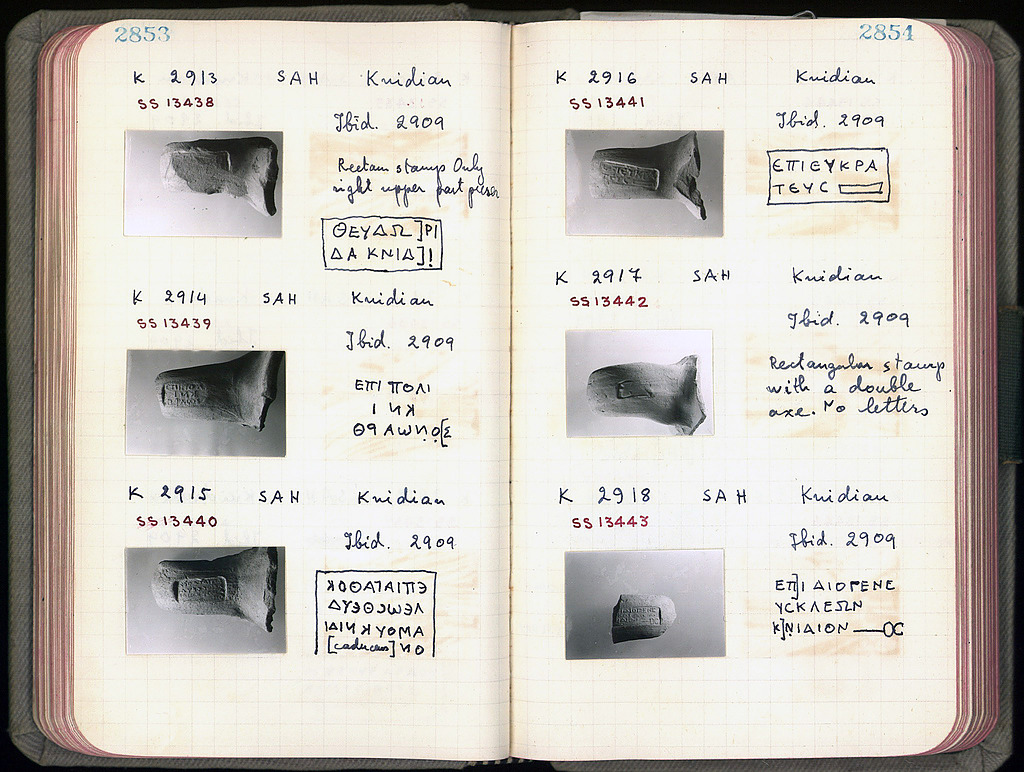 2853
K 2913 SAH Knidian
SS 13438
Ibid. 2909
Rectan stamp Only
right upper part preser
ΘΕΥΔΩ]ΡΙ
ΔΑ ΚΝΙΔ]Ι
K 2914 SAH Knidian
SS 13439
Ibid. 2909
ΕΠΙ ΠΟΛΙ
Ι И Κ
ΘΡΑΩИΟ[Σ
K 2915 SAH Knidian
SS 13440
Ibid. 2909
ΕΠΙΑΓΑΘΟΚ
ΛΕΩCΘΕΥΔ
ΑΜΟΥΚИΙΔΙ
[caduceus] ИΟ
2854
K 2916 SAH Knidian
SS 13441
Ibid. 2909
ΕΠΙΕΥΚΡΑ
ΤΕΥC
K 2917 SAH Knidian
SS 13442
Ibid. 2909
Rectangular stamp
with a double
axe. No letters
K 2918 SAH Knidian
SS 13443
Ibid. 2909
ΕΠ]Ι ΔΙΟΓΕΝΕ
ΥCΚΛΕΩΝ
Κ]ΝΙΔΙΟΝ